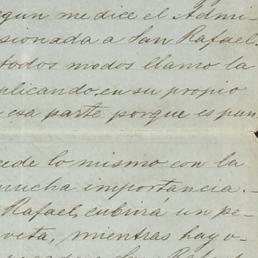 egun me dice el Admi-
sionada a San Rafael.
todos modos llamo la
plicando, en su propio
esa parte porque es pun
cede lo mismo con la
mucha importancia.-
Rafael, cubrirá un pe-
veta, mientras hay o-